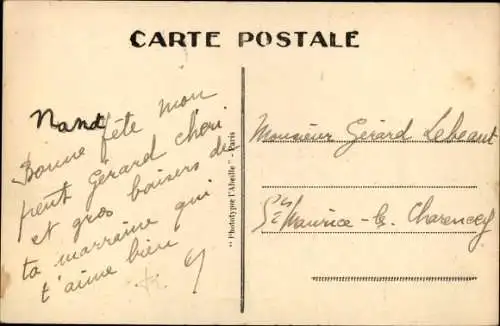 CARTE POSTALE
Nand
Bonne fête mon
petit Gérard chéri
et gros baisers de
ta marraine qui
t'aime bien
"Phototype l'Abeille" - Paris
Monsieur Gérard Lebeaut
St Maurice-les Charencey